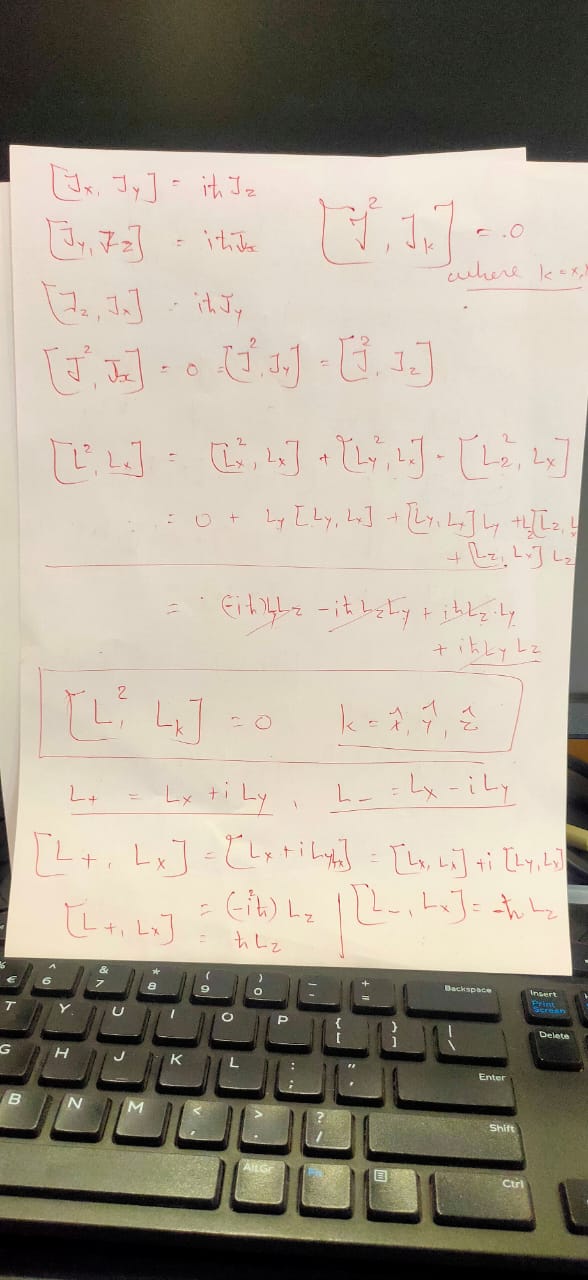 [Jx, Jy] = iħ Jz
[Jy, Jz] = iħ Jx
[J², Jk] = 0
where k = x,
[Jz, Jx] = iħ Jy
[J², Jx] = 0 = [J², Jy] = [J², Jz]
[L², Lx] = [Lx², Lx] + [Ly², Lx] - [Lz², Lx]
= 0 + Ly [Ly, Lx] + [Ly, Lx] Ly + Lz [Lz, L
+ [Lz, Lx] Lz
= (-iħ) Ly Lz - iħ Lz Ly + iħ Lz. Ly
+ iħ Ly Lz
[L², Lk] = 0 k = x̂, ŷ, ẑ
L+ = Lx + i Ly, L- = Lx - i Ly
[L+, Lx] = [Lx + i Ly, Lx] = [Lx, Lx] + i [Ly, Lx]
[L+, Lx] = (-i²ħ) Lz | [L-, Lx] = -ħ Lz
= ħ Lz
% € ^ 6 & 7 * 8 ( 9 ) 0 _ - + = Backspace Insert
Print Screen
T Y U I O P { [ } ] | \ Delete
G H J K L : ; " ' Enter
B N M < , > . ? / Shift
AltGr Fn Ctrl